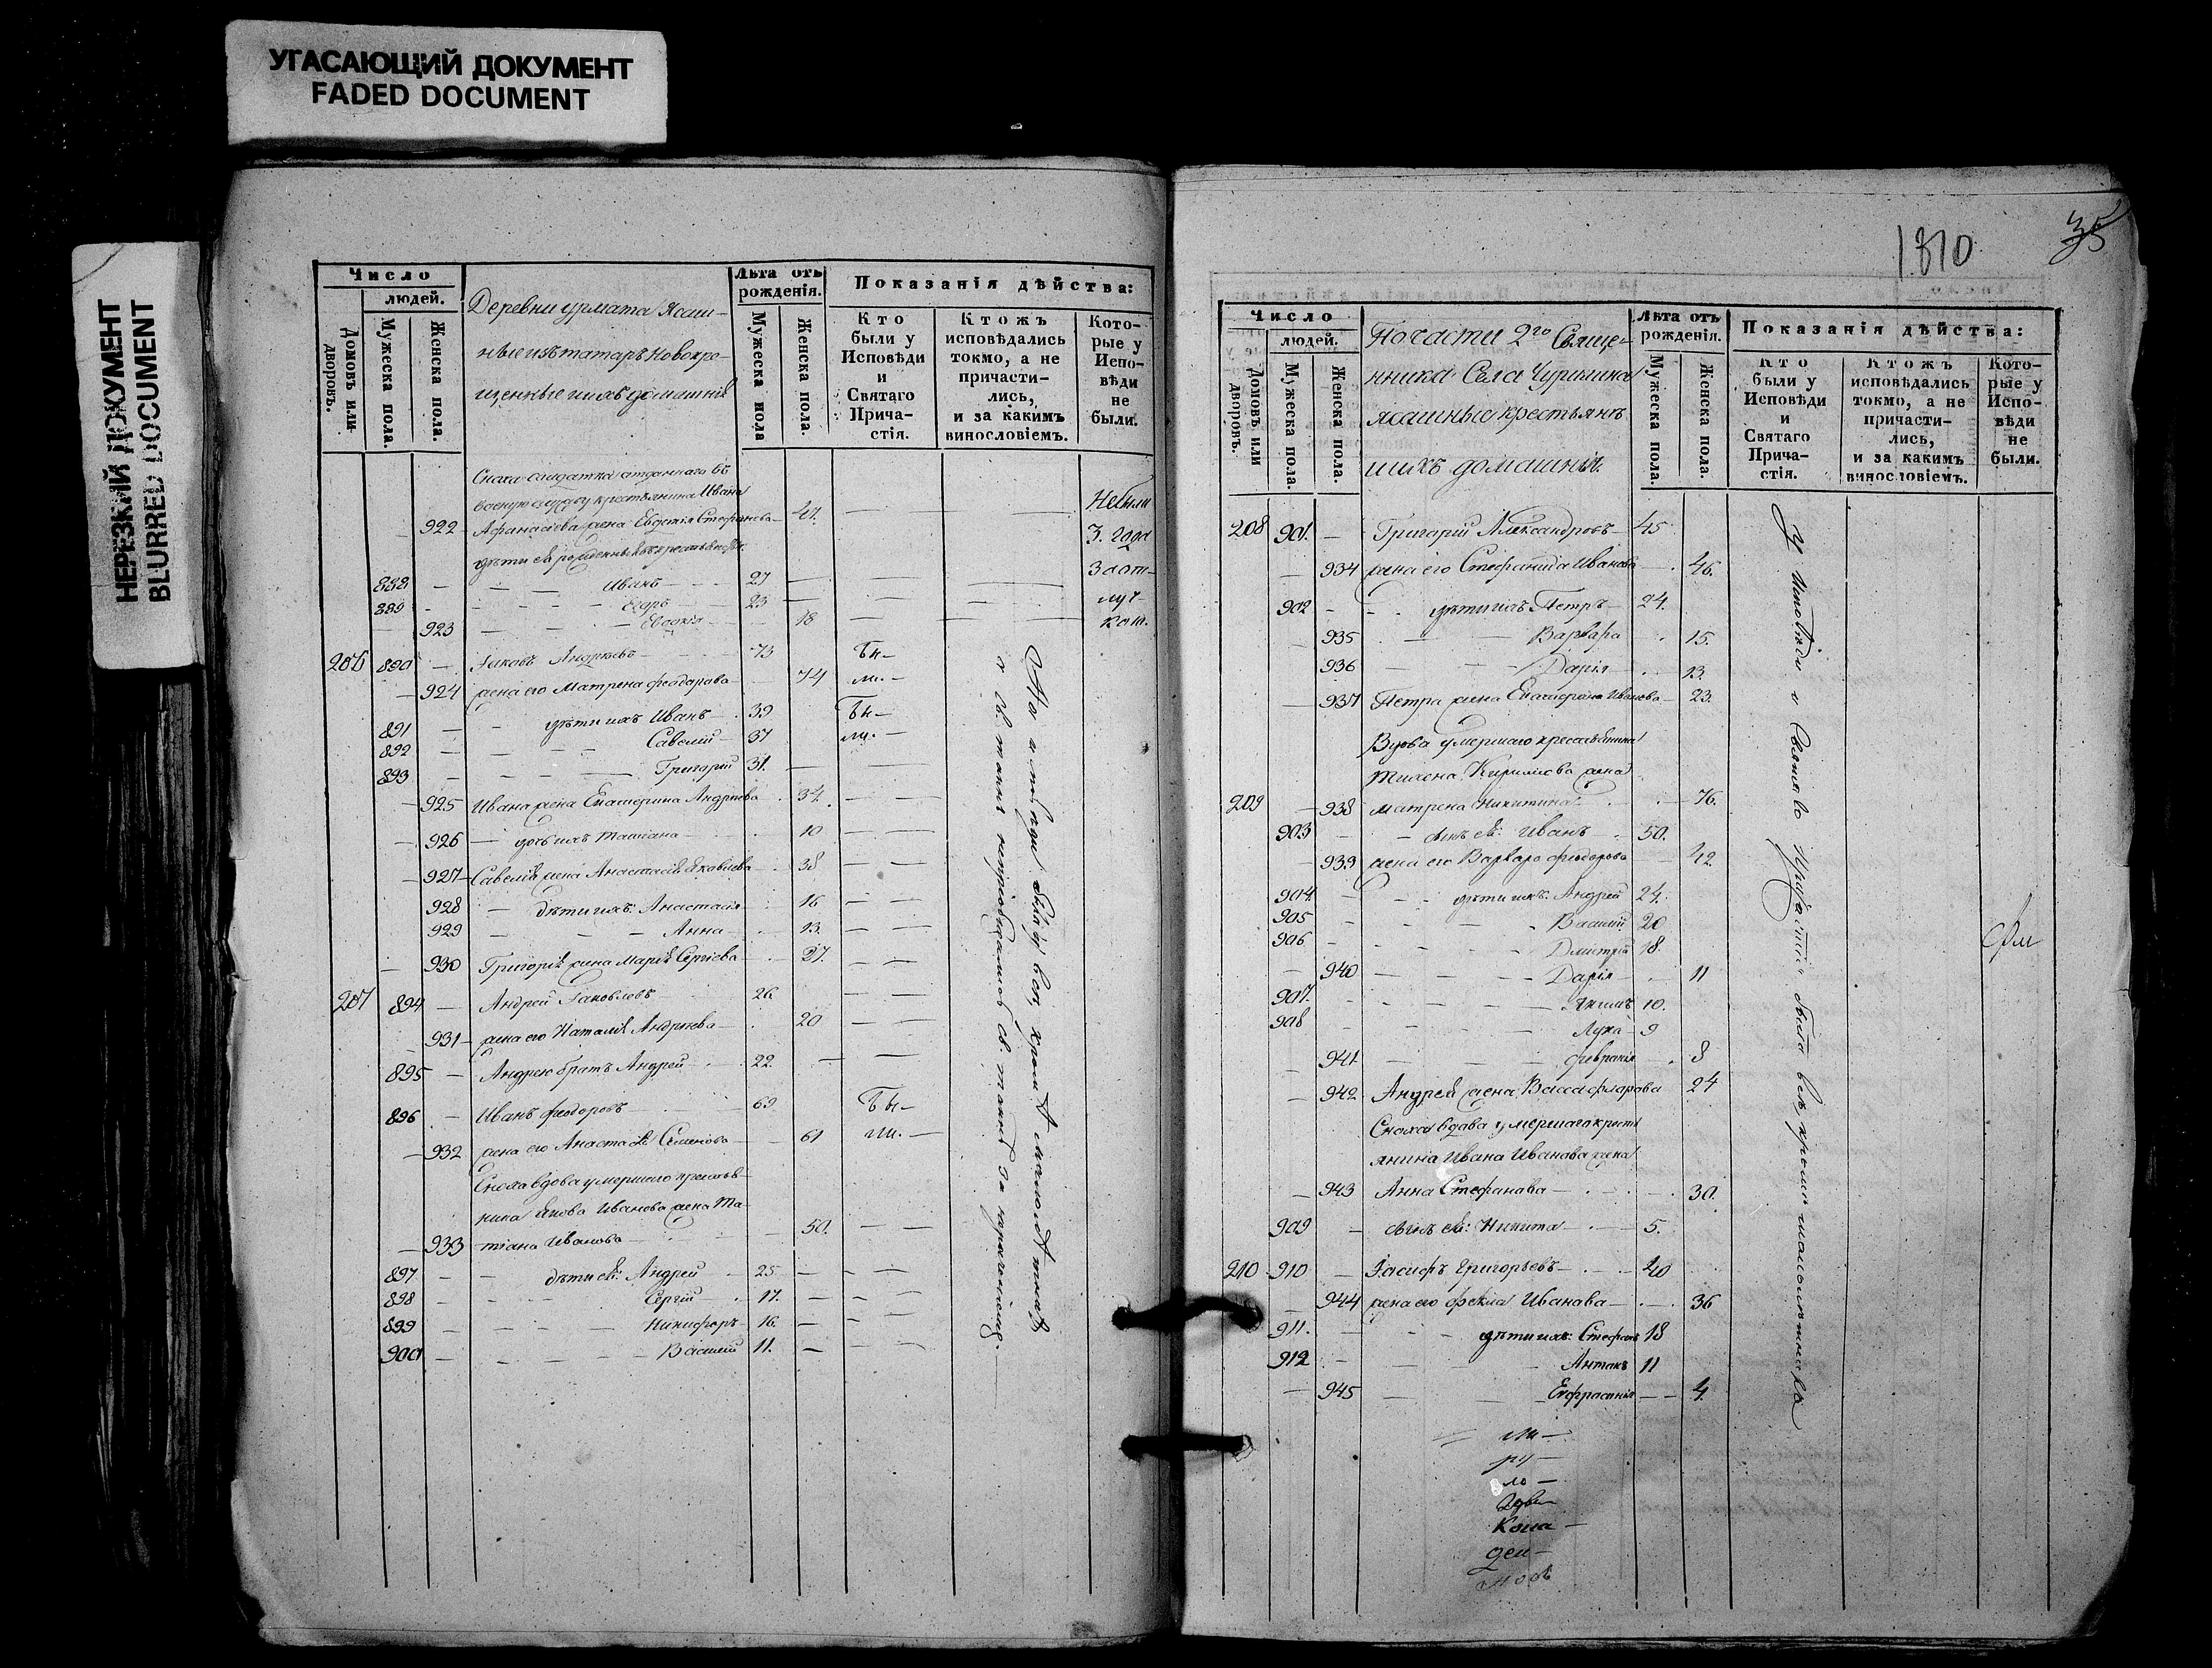 УГАСАЮЩИЙ ДОКУМЕНТ
FADED DOCUMENT
НЕРЕЗКИЙ ДОКУМЕНТ
BLURRED DOCUMENT
Число
людей.
Домовъ или дворовъ.
Мужеска пола.
Женска пола.
Деревни Урмата Ясаш-
ныя изъ татаръ Новокре-
щенные и ихъ домашнія
Лѣта отъ рожденія.
Мужеска пола
Женска пола.
Показанія дѣйства:
Кто были у Исповѣди и Святаго Прича- стія.
Ктожъ исповѣдались токмо, а не причасти- лись, и за какимъ винословіемъ.
Кото- рые у Испо- вѣди не были.
Сноха салдатка отданнаго въ
военую службу крестьянина Ивана
922 Афанасьева жена Евдокія Стефанова 47.
дѣти ея рожденныя въ крестьянствѣ
888 Иванъ 27
889 Егоръ 23
923 Евдокія 18
Небыли
3. года
За от-
луч-
кою.
206 890 Іаковъ Андреевъ 73 Бы-
924 жена его Матрена Феодорова 74 ли.
891 дѣти ихъ Иванъ 39 Бы-
892 Савелий 37 ли.
893 Григорий 31.
925 Ивана жена Екатерина Андреева 34.
926 дочь ихъ Татиана 10
927 Савелія жена Анастасія Яковлева 38
928 дѣти ихъ: Анастасія 16
929 Анна 13.
930 Григорія жена Марія Сергіева 27.
207 894 Андрей Іаковлевъ 26
931 жена его Наталія Андреева 20
895 Андрею братъ Андрей 22.
896 Иванъ Феодоровъ 69 Бы-
932 жена его Анастасія Семенова 61 ли.
Сноха вдова умершаго крестья-
нина Якова Иванова жена Та-
933 тіана Иванова 50.
897 дѣти ея: Андрей 25
898 Сергій 17.
899 Никифоръ 16.
900 Василій 11.
1810
35
Число
людей.
Домовъ или дворовъ.
Мужеска пола.
Женска пола.
По части 2го Свяще-
нника Села Чурилина
ясашныя крестьянъ
и ихъ домашнія.
Лѣта отъ рожденія.
Мужеска пола.
Женска пола.
Показанія дѣйства:
Кто были у Исповѣди и Святаго Прича- стія.
Ктожъ исповѣдались токмо, а не причасти- лись, и за какимъ винословіемъ.
Кото- рые у Испо- вѣди не были.
208 901. Григорій Александровъ 45
934 жена его Стефанида Иванова 46.
902 дѣти ихъ Петръ 24.
935 Варвара 15.
936 Дарія 13.
937 Петра жена Екатерина Иванова 23.
Вдова умершаго крестьянина
Кирилова жена
209 938 Матрена Никитина 76.
903 сынъ ея: Иванъ 50.
939 жена его Варвара Феодорова 42.
904. дѣти ихъ: Андрей 24.
905 Василій 20
906 Дмитрій 18.
940 Дарія 11
907. 10.
908 Лука 9
941 Февронія 8
942 Андрея жена Васса Флорова 24
Сноха вдова умершаго крестья
янина Ивана Иванова жена
943 Анна Стефанова 30.
909 сынъ ея: Никита 5.
210 910 Іасифъ Григорьевъ 40
944 жена его Фекла Иванова 36
911. дѣти ихъ: Стефанъ 18
912 Антонъ 11
945 Евфросинія 4.
У исповѣди и Святаго причастія были всѣ, кромѣ малолѣтныхъ